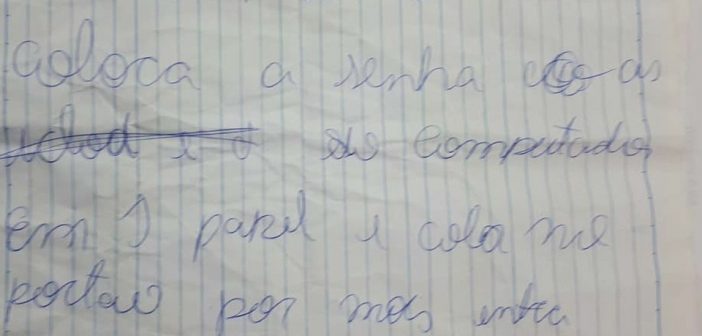 coloca a senha as
do computador
em 1 papel i cola no
portao por nois entra